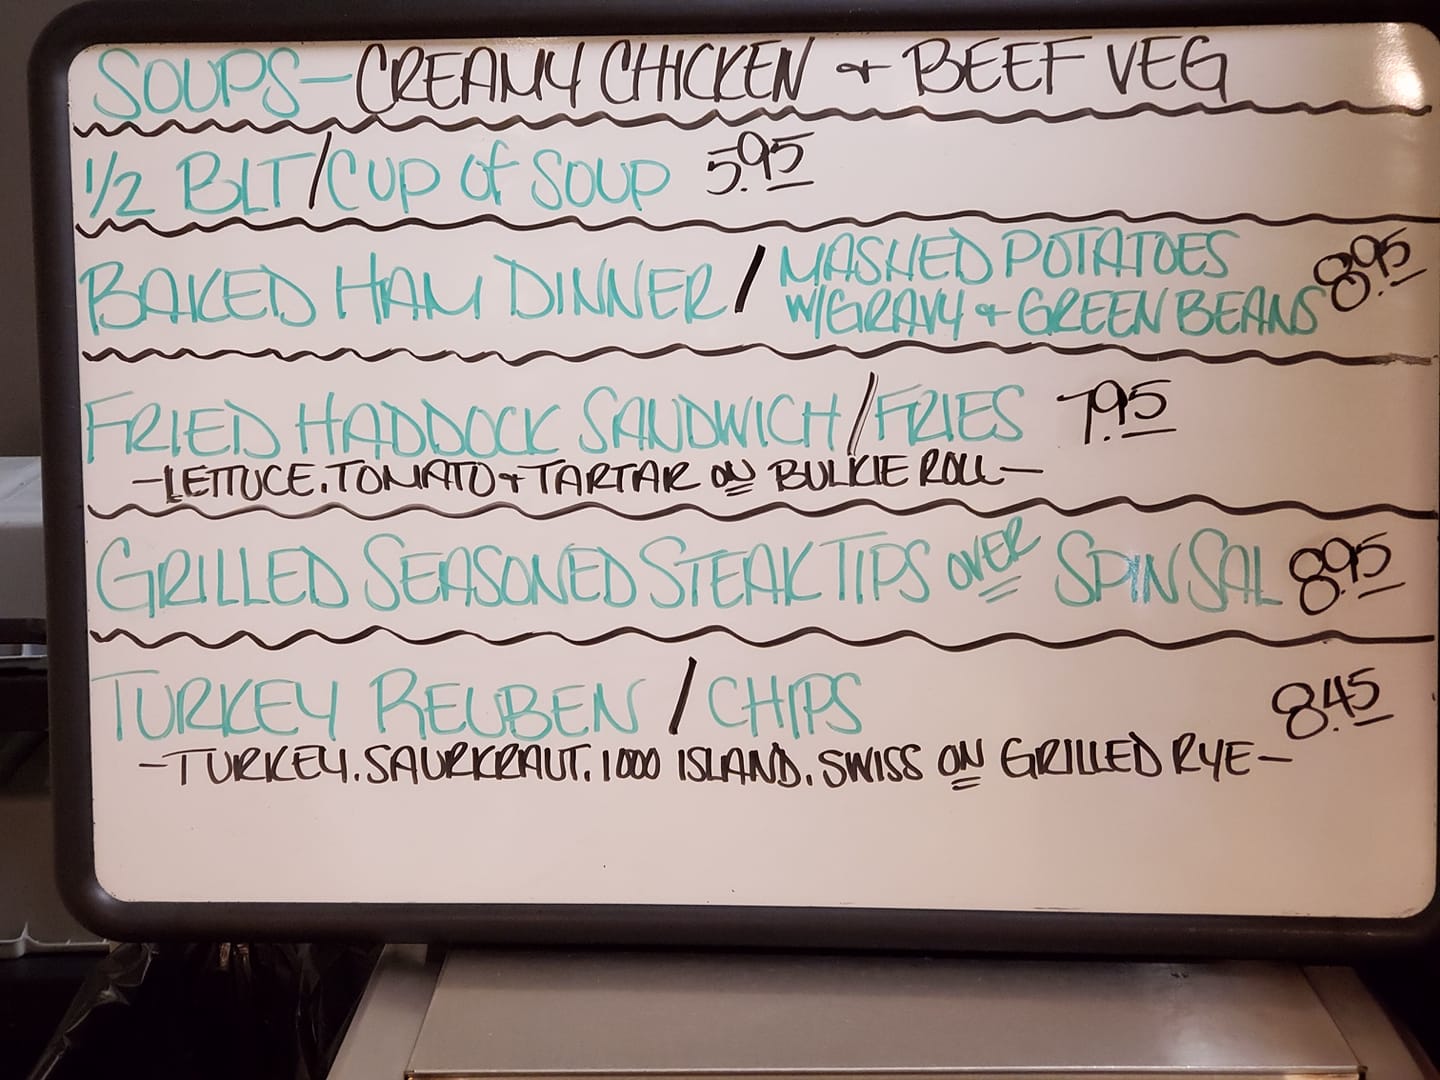 SOUPS-CREAMY CHICKEN & BEEF VEG
1/2 BLT/CUP Of SOUP 5.95
BAKED HAM DINNER / MASHED POTATOES
W/GRAVY & GREEN BEANS 8.95
FRIED HADDOCK SANDWICH/FRIES 7.95
-LETTUCE.TOMATO & TARTAR ON BULKIE ROLL-
GRILLED SEASONED STEAK TIPS OVER SPIN SAL 8.95
TURKEY REUBEN / CHIPS 8.45
-TURKEY.SAURKRAUT.1000 ISLAND.SWISS ON GRILLED RYE-